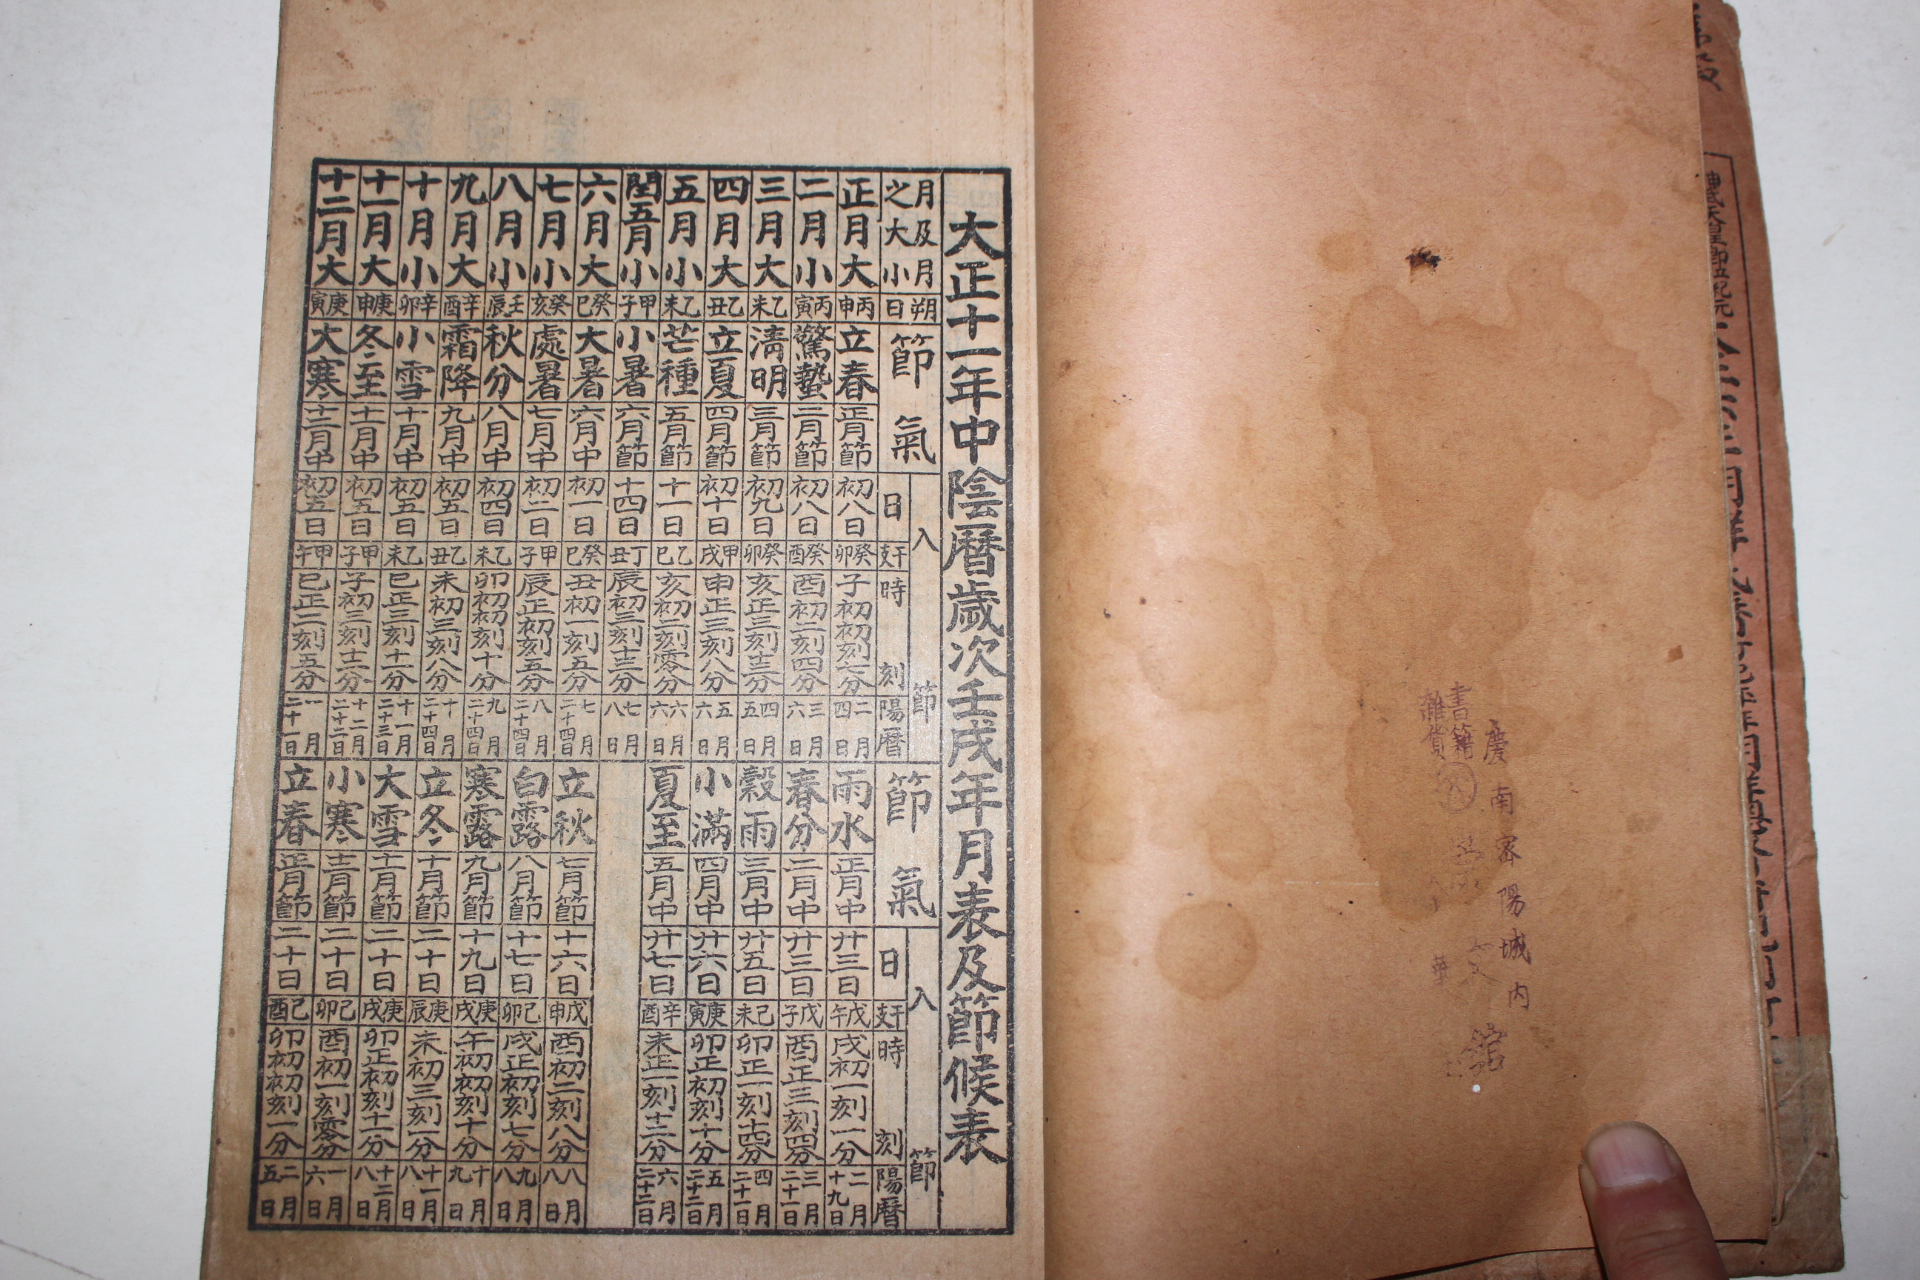 慶南密陽城內
書籍
雜貨
文
華
館
大正十一年中陰曆歲次壬戌年月表及節候表
月及月朔
之大小日
節氣
入節
日干支時刻陽曆
節氣
入節
日干支時刻陽曆
正月大 丙申 立春 正月節 初八日 癸卯 子初初刻七分 二月四日 雨水 正月中 廿三日 戊午 戌初一刻一分 二月十九日
二月小 丙寅 驚蟄 二月節 初八日 癸酉 酉初二刻四分 三月六日 春分 二月中 廿三日 戊子 酉正三刻四分 三月二十一日
三月大 乙未 清明 三月節 初九日 癸卯 亥正三刻十三分 四月五日 穀雨 三月中 廿五日 己未 卯正一刻十四分 四月二十一日
四月大 乙丑 立夏 四月節 初十日 甲戌 申正三刻八分 五月六日 小滿 四月中 廿六日 庚寅 卯正初刻十分 五月二十二日
五月小 乙未 芒種 五月節 十一日 乙巳 亥初二刻零分 六月六日 夏至 五月中 廿七日 辛酉 未正一刻十二分 六月二十二日
閏五月小 甲子 小暑 六月節 十四日 丁丑 辰初三刻十三分 七月八日
六月大 癸巳 大暑 六月中 初一日 癸巳 丑初一刻五分 七月二十四日 立秋 七月節 十六日 戊申 酉初二刻八分 八月八日
七月小 癸亥 處暑 七月中 初二日 甲子 辰正初刻五分 八月二十四日 白露 八月節 十七日 己卯 戌正初刻七分 九月八日
八月小 壬辰 秋分 八月中 初四日 乙未 卯初初刻十分 九月二十四日 寒露 九月節 十九日 庚戌 午初初刻十分 十月九日
九月大 辛酉 霜降 九月中 初五日 乙丑 未初三刻八分 十月二十四日 立冬 十月節 二十日 庚辰 未初三刻一分 十一月八日
十月小 辛卯 小雪 十月中 初五日 乙未 巳正三刻十一分 十一月二十三日 大雪 十一月節 二十日 庚戌 卯正初刻十一分 十二月八日
十一月大 庚申 冬至 十一月中 初五日 甲子 子初三刻十三分 十二月二十二日 小寒 十二月節 二十日 己卯 酉初一刻零分 一月六日
十二月大 庚寅 大寒 十二月中 初五日 甲午 巳正二刻五分 一月二十一日 立春 正月節 二十日 己酉 卯初初刻一分 二月五日